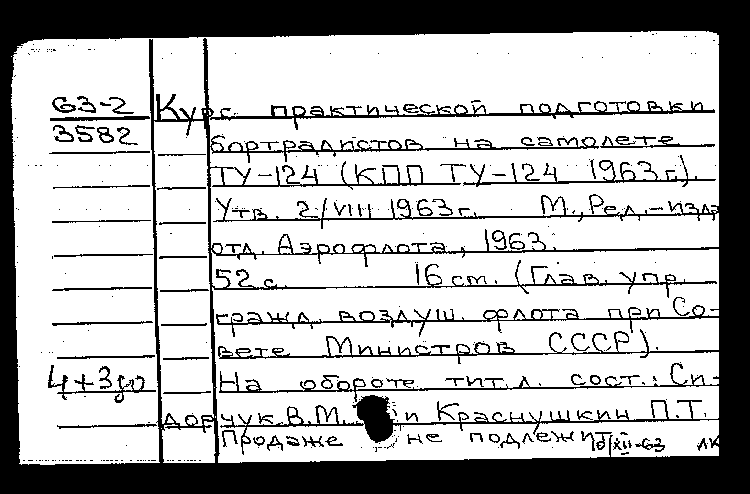 63-2 Курс практической подготовки
3582 бортрадистов на самолете
ТУ-124 (КПП ТУ-124 1963 г.).
Утв. 2/VIII 1963 г. М., Ред.-изд.
отд. Аэрофлота, 1963.
52 с. 16 cm. (Глав. упр.
гражд. воздуш. флота при Со-
вете Министров СССР).
4+3до На обороте тит. л. сост.: Си-
дорчук В.М. и Краснушкин П.Т.
Продаже не подлежит
10/XII-63 ЛК